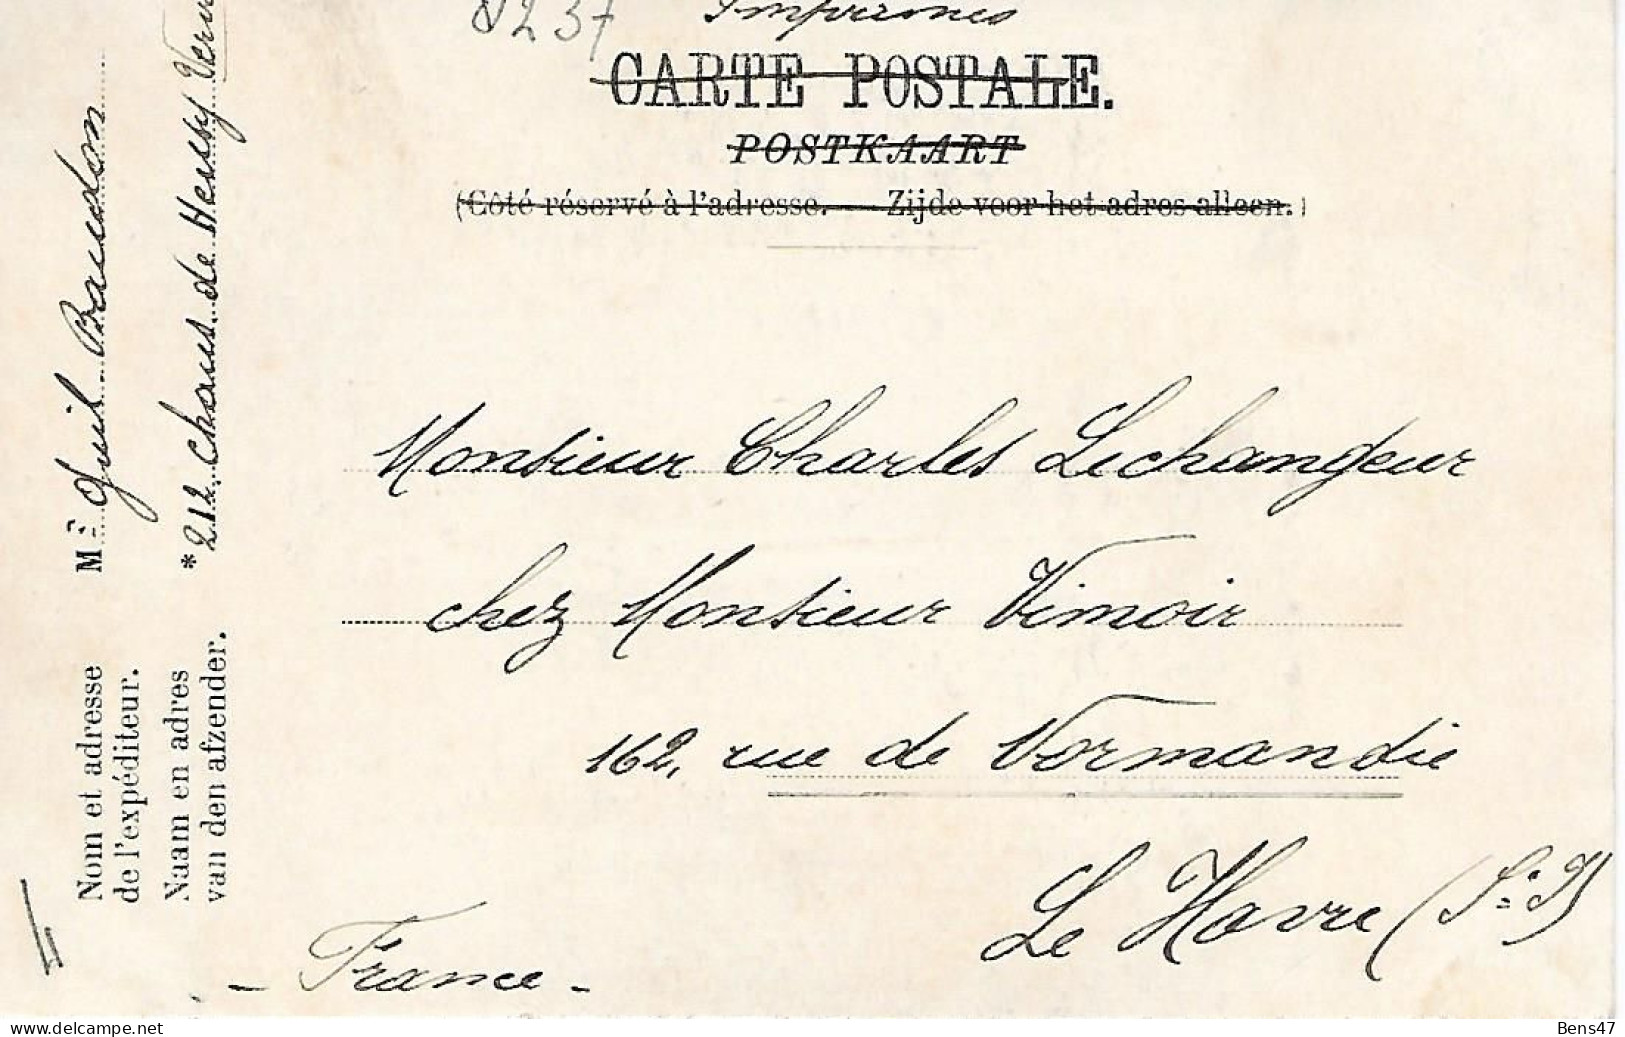 8237 Imprimés
CARTE POSTALE.
POSTKAART
(Côté réservé à l'adresse. — Zijde voor het adres alleen.)
Monsieur Charles Lechangeur
chez Monsieur Vimoir
162, rue de Normandie
Le Havre (S.=I)
- France -
Nom et adresse
de l'expéditeur.
Naam en adres
van den afzender.
Mr Guil. Baudon
*212 Chauss. de
www.delcampe.net
Bens47